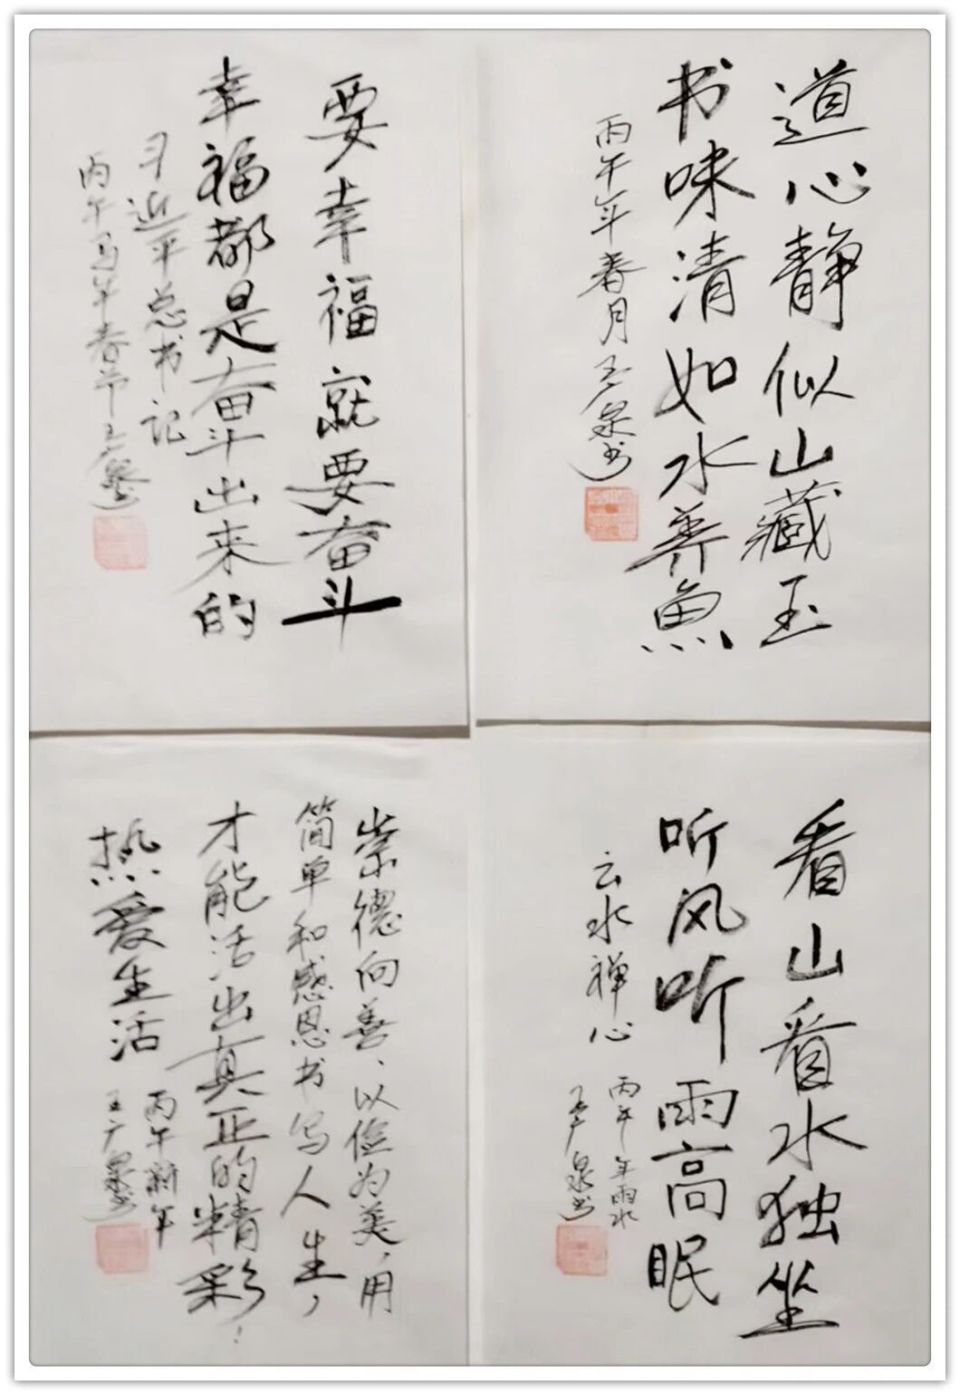 道心静似山藏玉
书味清如水养魚
丙午年春月王广泉书
要幸福就要奋斗
幸福都是奋斗出来的
习近平总书记
丙午马年春节王广泉书
看山看水独坐
听风听雨高眠
云水禅心
丙午年雨水
王广泉书
崇德向善、以俭为美，用
简单和感恩书写人生，
才能活出真正的精彩！
热爱生活
丙午新年
王广泉书